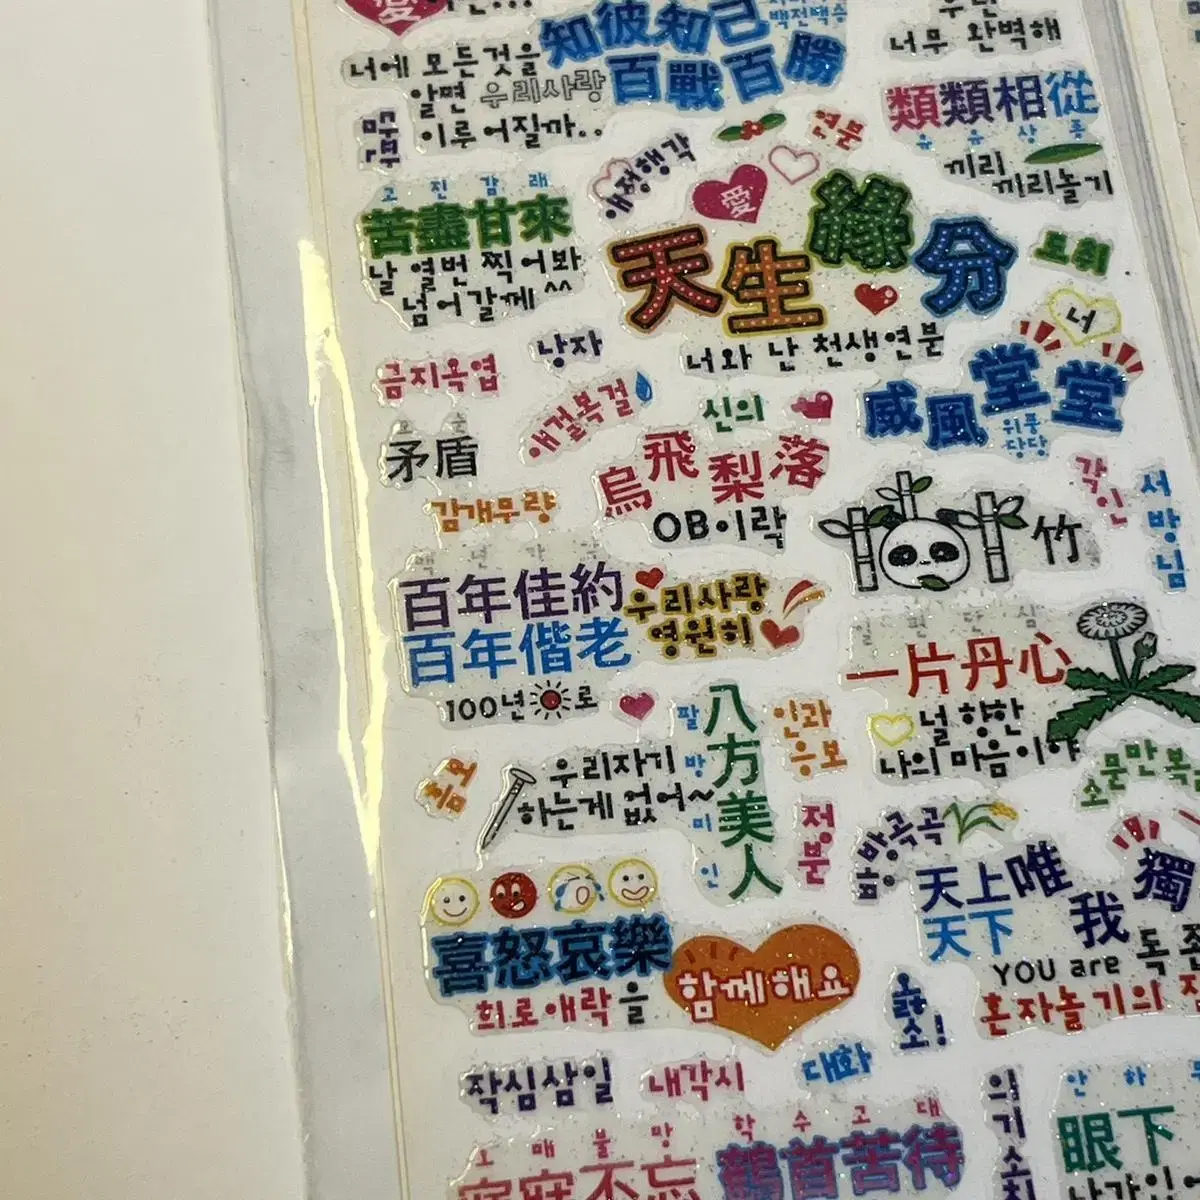 愛
너에 모든것을
알면 우리사랑
이루어질까..
知彼知己
百戰百勝
너무 완벽해
類類相從
유유상종
끼리
끼리놀기
고진감래
苦盡甘來
날 열번 찍어봐
넘어갈께^^
애정행각
愛
연분
天生緣分
너와 난 천생연분
도취
너
금지옥엽
낭자
애걸복걸
신의
威風堂堂
위풍
당당
矛盾
감개무량
烏飛梨落
OB이락
竹
각인
서방님
百年佳約
百年偕老
100년 로
우리사랑
영원히
일편단심
一片丹心
널 향한
나의 마음이야
흠모
우리자기
하는게 없어~
팔방미인
八方美人
인과
응보
정분
소문만복
방방곡곡
喜怒哀樂
희로애락을
함께해요
天上
天下
唯我獨
YOU are 독존
혼자놀기의
작심삼일
내각시
대화
오매불망
寤寐不忘
학수고대
鶴首苦待
의기소
안하
眼下